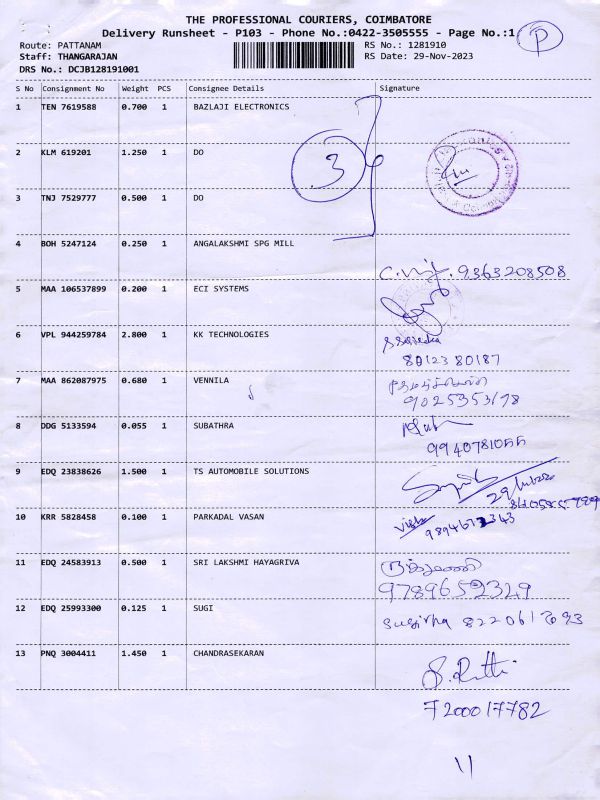 THE PROFESSIONAL COURIERS, COIMBATORE
Delivery Runsheet - P103 - Phone No.:0422-3505555 - Page No.:1 P
Route: PATTANAM RS No.: 1281910
Staff: THANGARAJAN RS Date: 29-Nov-2023
DRS No.: DCJB128191001
S No Consignment No Weight PCS Consignee Details Signature
1 TEN 7619588 0.700 1 BAZLAJI ELECTRONICS
2 KLM 619201 1.250 1 DO
3
3 TNJ 7529777 0.500 1 DO
4 BOH 5247124 0.250 1 ANGALAKSHMI SPG MILL
9363208508
5 MAA 106537899 0.200 1 ECI SYSTEMS
6 VPL 944259784 2.800 1 KK TECHNOLOGIES
80123 80187
7 MAA 862087975 0.680 1 VENNILA
9025353178
8 DDG 5133594 0.055 1 SUBATHRA
9940781055
9 EDQ 23838626 1.500 1 TS AUTOMOBILE SOLUTIONS
10 KRR 5828458 0.100 1 PARKADAL VASAN
11 EDQ 24583913 0.500 1 SRI LAKSHMI HAYAGRIVA
9789652349
12 EDQ 25993300 0.125 1 SUGI
13 PNQ 3004411 1.450 1 CHANDRASEKARAN
7200017782
11